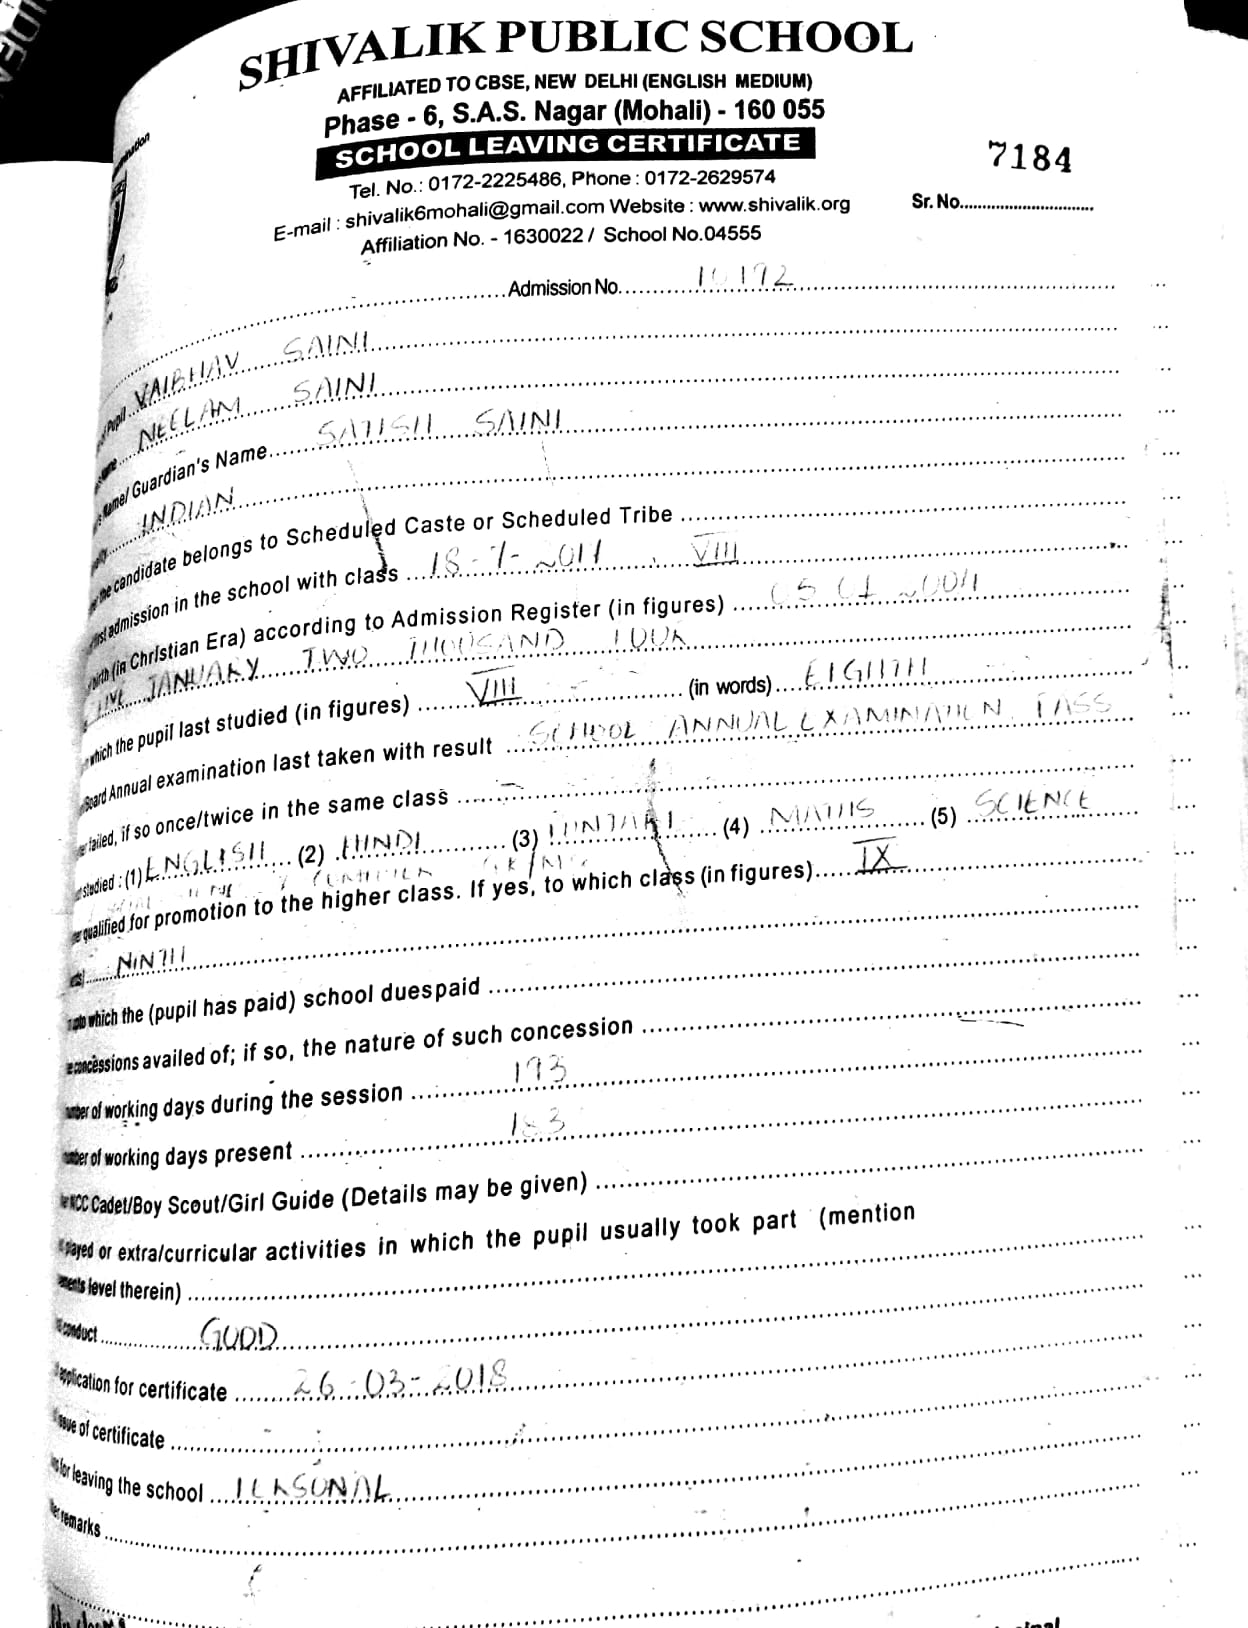 SHIVALIK PUBLIC SCHOOL
AFFILIATED TO CBSE, NEW DELHI (ENGLISH MEDIUM)
Phase - 6, S.A.S. Nagar (Mohali) - 160 055
SCHOOL LEAVING CERTIFICATE
7184
Tel. No.: 0172-2225486, Phone : 0172-2629574
E-mail : shivalik6mohali@gmail.com Website : www.shivalik.org
Sr. No.
Affiliation No. - 1630022 / School No.04555
Admission No. 10192
Pupil VAIBHAV SAINI
NEELAM SAINI
Name/ Guardian's Name SATISH SAINI
INDIAN
the candidate belongs to Scheduled Caste or Scheduled Tribe
admission in the school with class 18-7-2011 , VIII
birth (in Christian Era) according to Admission Register (in figures) 05 01 2004
FIVE JANUARY TWO THOUSAND FOUR
which the pupil last studied (in figures) VIII (in words) EIGHTH
Board Annual examination last taken with result SCHOOL ANNUAL EXAMINATION PASS
failed, if so once/twice in the same class -
studied : (1) ENGLISH (2) HINDI (3) PUNJABI (4) MATHS (5) SCIENCE
qualified for promotion to the higher class. If yes, to which class (in figures) IX
NINTH
which the (pupil has paid) school dues paid
concessions availed of; if so, the nature of such concession
of working days during the session 193
of working days present 183
NCC Cadet/Boy Scout/Girl Guide (Details may be given)
played or extra/curricular activities in which the pupil usually took part (mention
level therein)
conduct GOOD
application for certificate 26-03-2018
issue of certificate
for leaving the school PERSONAL
remarks